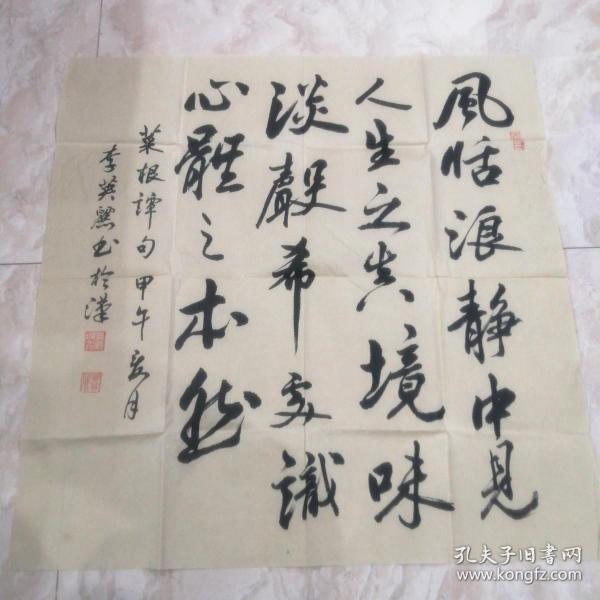 風恬浪静中見
人生之真境味
淡聲希處識
心體之本然
菜根譚句甲午夏月
李英
书於漢
孔夫子旧书网
www.kongfz.com